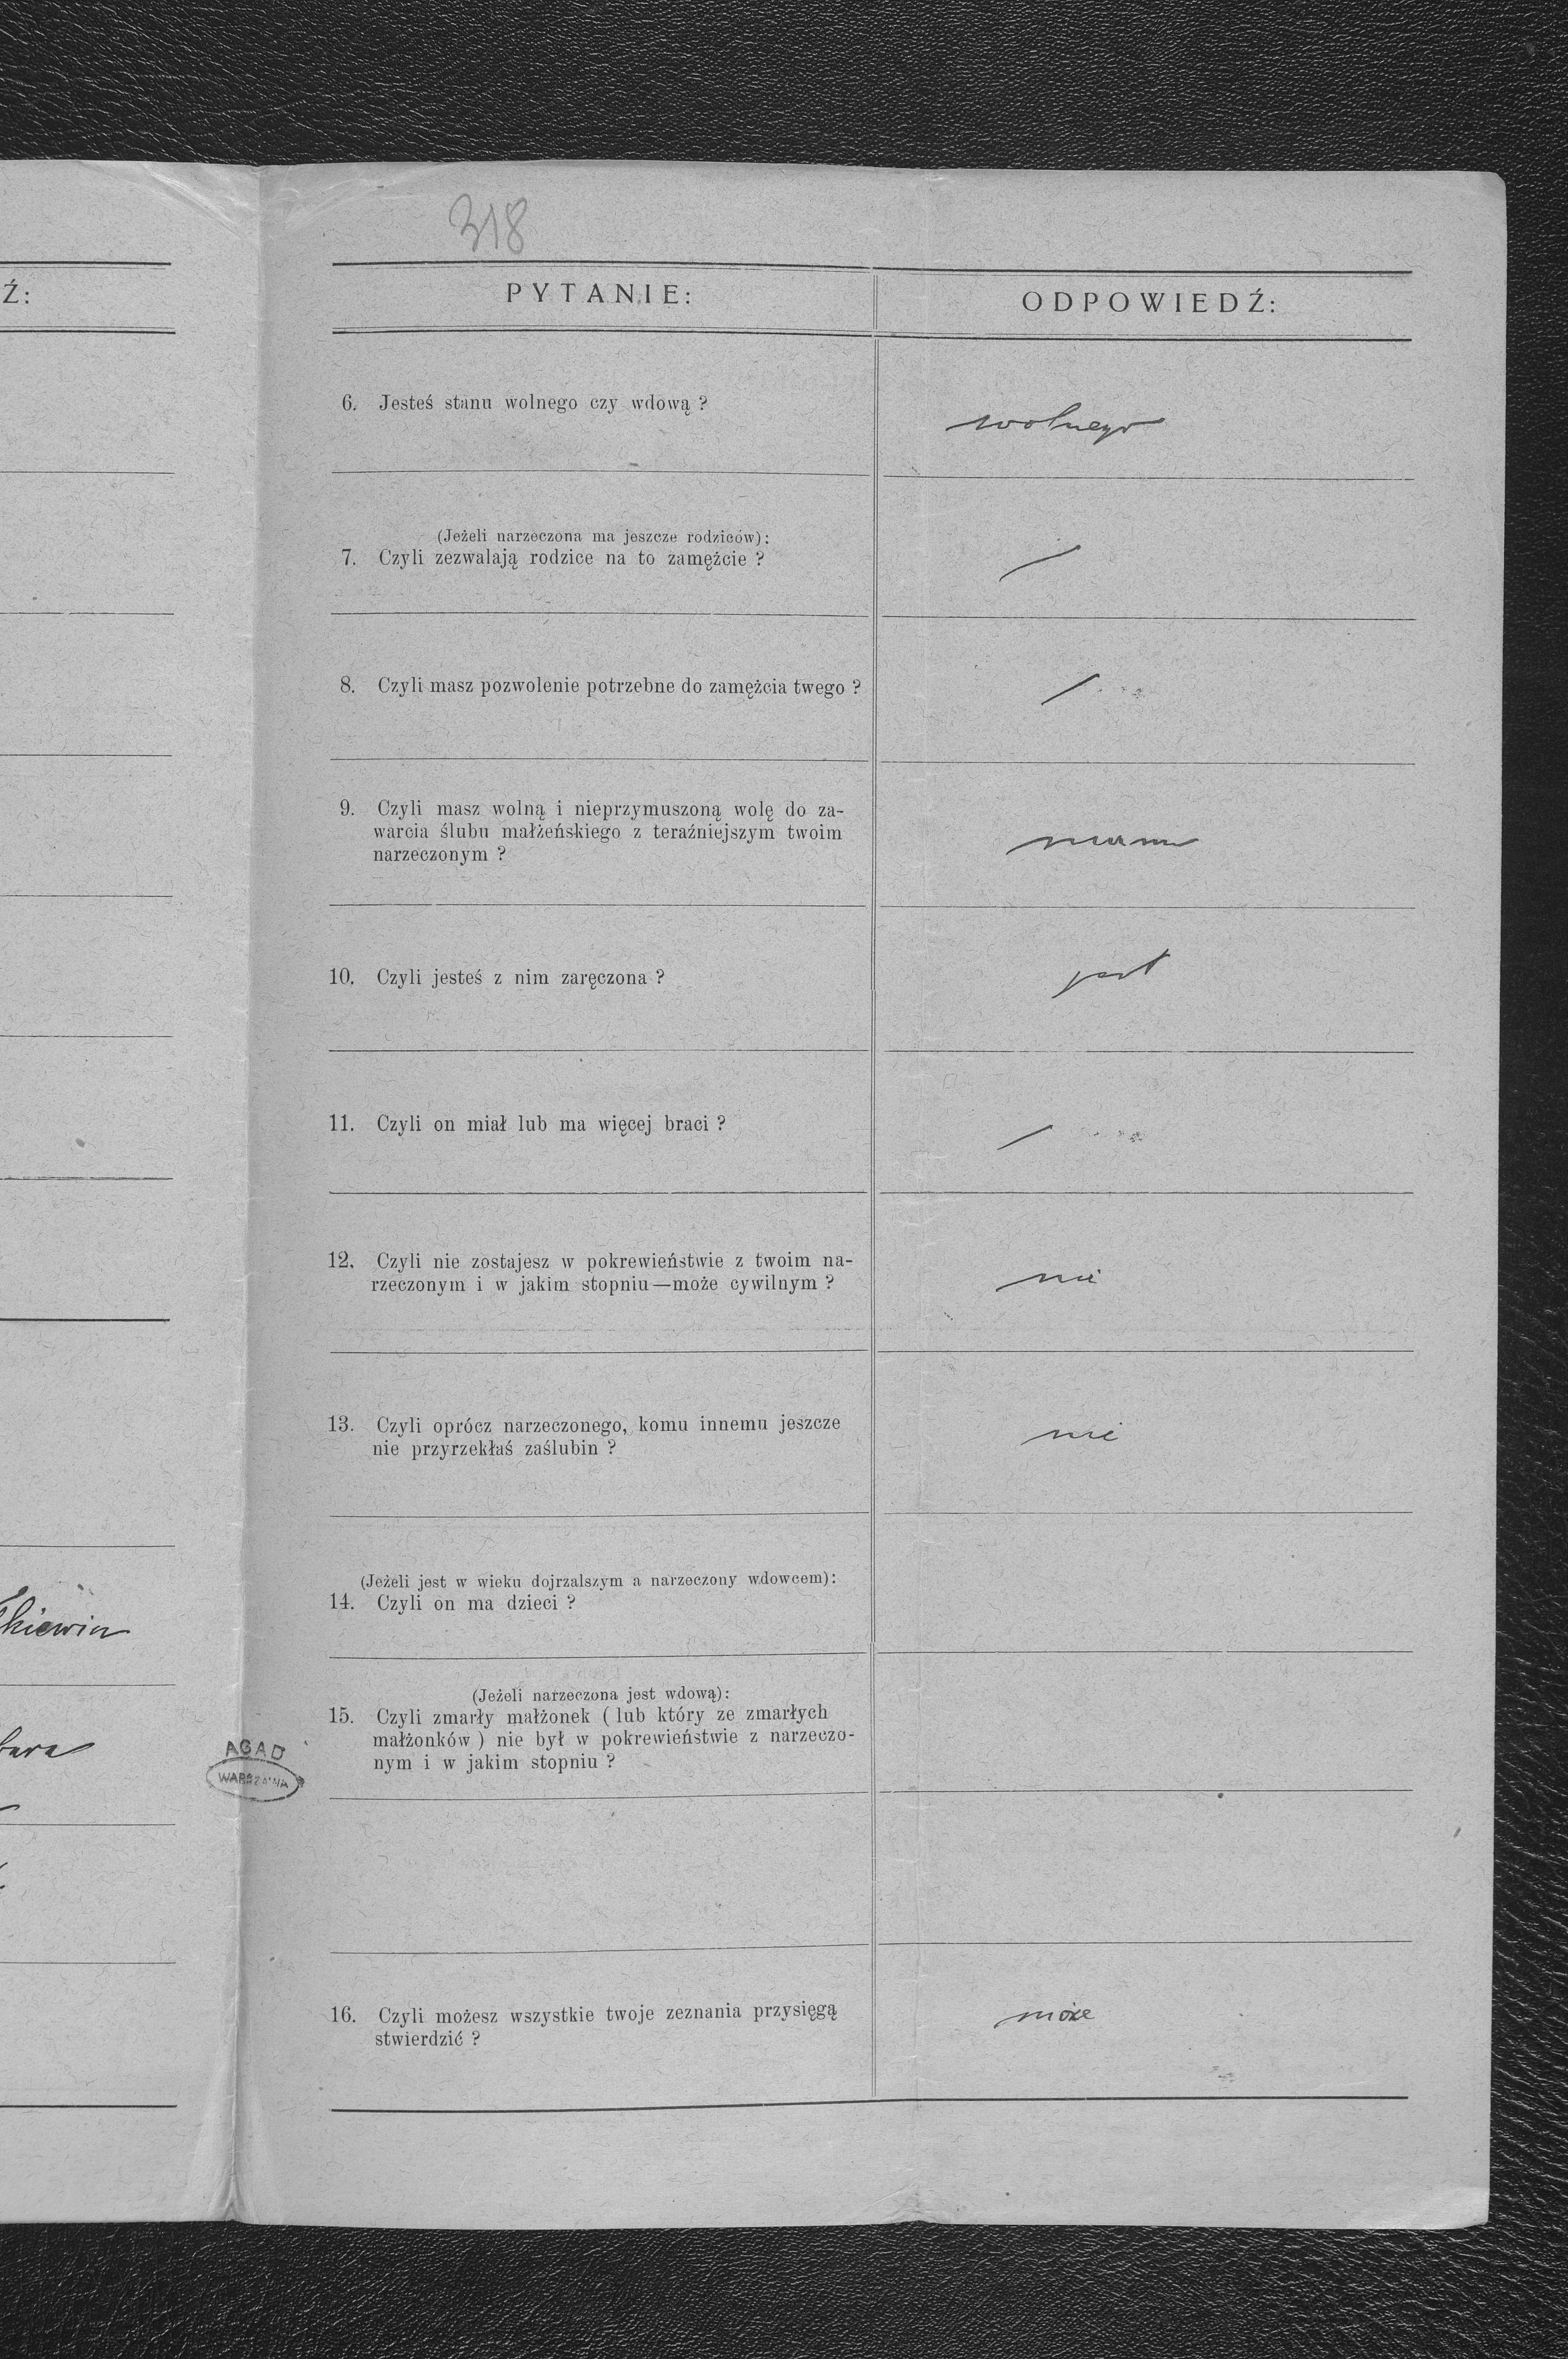 318
Ź:
PYTANIE:
ODPOWIEDŹ:
6. Jesteś stanu wolnego czy wdową ?
wolnego
(Jeżeli narzeczona ma jeszcze rodziców):
7. Czyli zezwalają rodzice na to zamężcie ?
/
8. Czyli masz pozwolenie potrzebne do zamężcia twego ?
/
9. Czyli masz wolną i nieprzymuszoną wolę do za-
warcia ślubu małżeńskiego z teraźniejszym twoim
narzeczonym ?
mam
10. Czyli jesteś z nim zaręczona ?
jest
11. Czyli on miał lub ma więcej braci ?
/
12. Czyli nie zostajesz w pokrewieństwie z twoim na-
rzeczonym i w jakim stopniu—może cywilnym ?
nie
13. Czyli oprócz narzeczonego, komu innemu jeszcze
nie przyrzekłaś zaślubin ?
nie
(Jeżeli jest w wieku dojrzalszym a narzeczony wdowcem):
14. Czyli on ma dzieci ?
(Jeżeli narzeczona jest wdową):
15. Czyli zmarły małżonek ( lub który ze zmarłych
małżonków ) nie był w pokrewieństwie z narzeczo-
nym i w jakim stopniu ?
AGAD
WARSZAWA
16. Czyli możesz wszystkie twoje zeznania przysięgą
stwierdzić ?
może